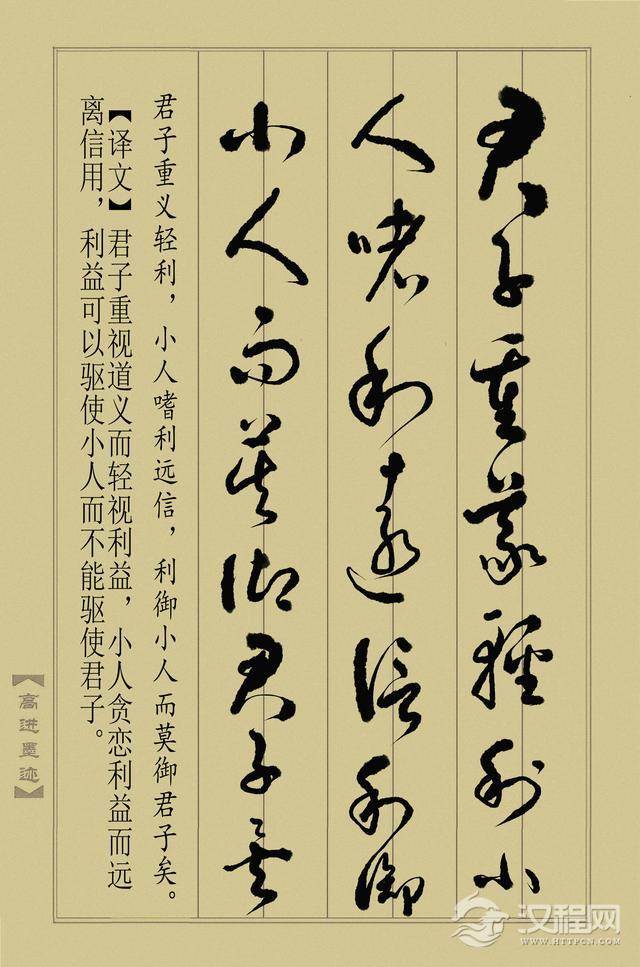 君子重義輕利小
人嗜利遠信利御
小人而莫御君子矣
君子重义轻利，小人嗜利远信，利御小人而莫御君子矣。
【译文】君子重视道义而轻视利益，小人贪恋利益而远
离信用，利益可以驱使小人而不能驱使君子。
【高进墨迹】
汉程网
WWW.HTTPCN.COM